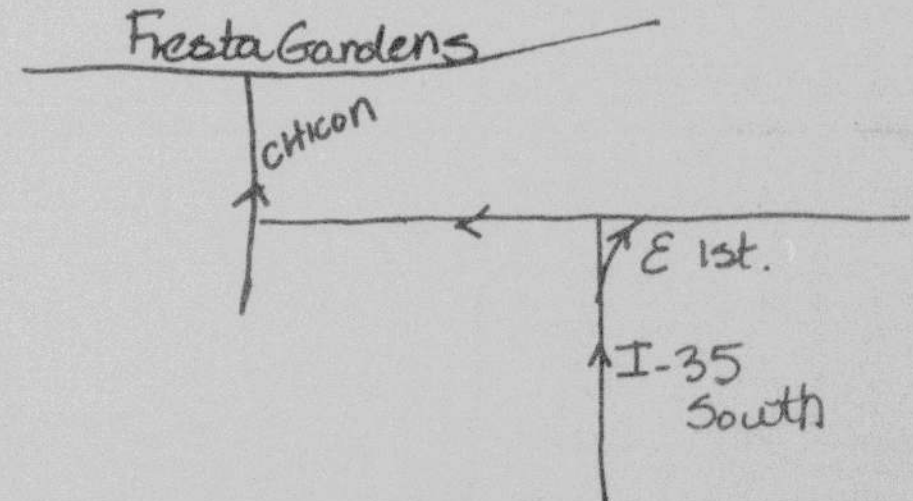 Fiesta Gardens
CHICON
E 1st.
I-35
South